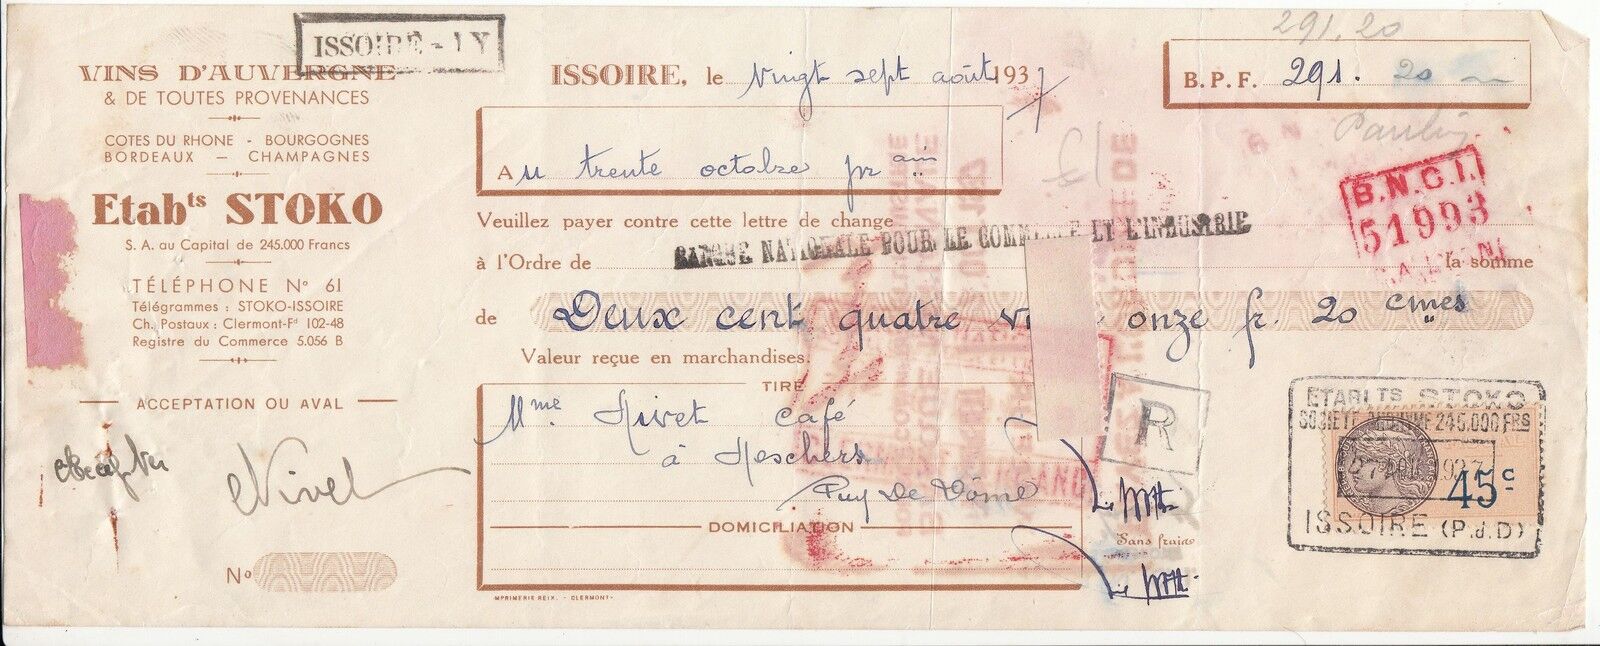 ISSOIRE - LY
VINS D'AUVERGNE
& DE TOUTES PROVENANCES
COTES DU RHONE - BOURGOGNES
BORDEAUX — CHAMPAGNES
Etabts STOKO
S. A. au Capital de 245.000 Francs
TÉLÉPHONE No 61
Télégrammes : STOKO-ISSOIRE
Ch. Postaux : Clermont-Fd 102-48
Registre du Commerce 5.056 B
ACCEPTATION OU AVAL
No
291,20
ISSOIRE, le Vingt sept août 1937
B. P. F. 291. 20
Au trente octobre prain
Veuillez payer contre cette lettre de change
B.N.C.I.
51993
à l'Ordre de BANQUE NATIONALE POUR LE COMMERCE ET L'INDUSTRIE la somme
de Deux cent quatre onze fr. 20 cmes
Valeur reçue en marchandises.
TIRÉ
Mme Nivet café
à Neschers
Puy De Dôme
R
DOMICILIATION
Sans frais
IMPRIMERIE REIX. - CLERMONT-
ETABLTS STOKO
SOCIETE ANONYME 245.000 FRS
27 AOU 1937
45c
ISSOIRE (P.d.D)